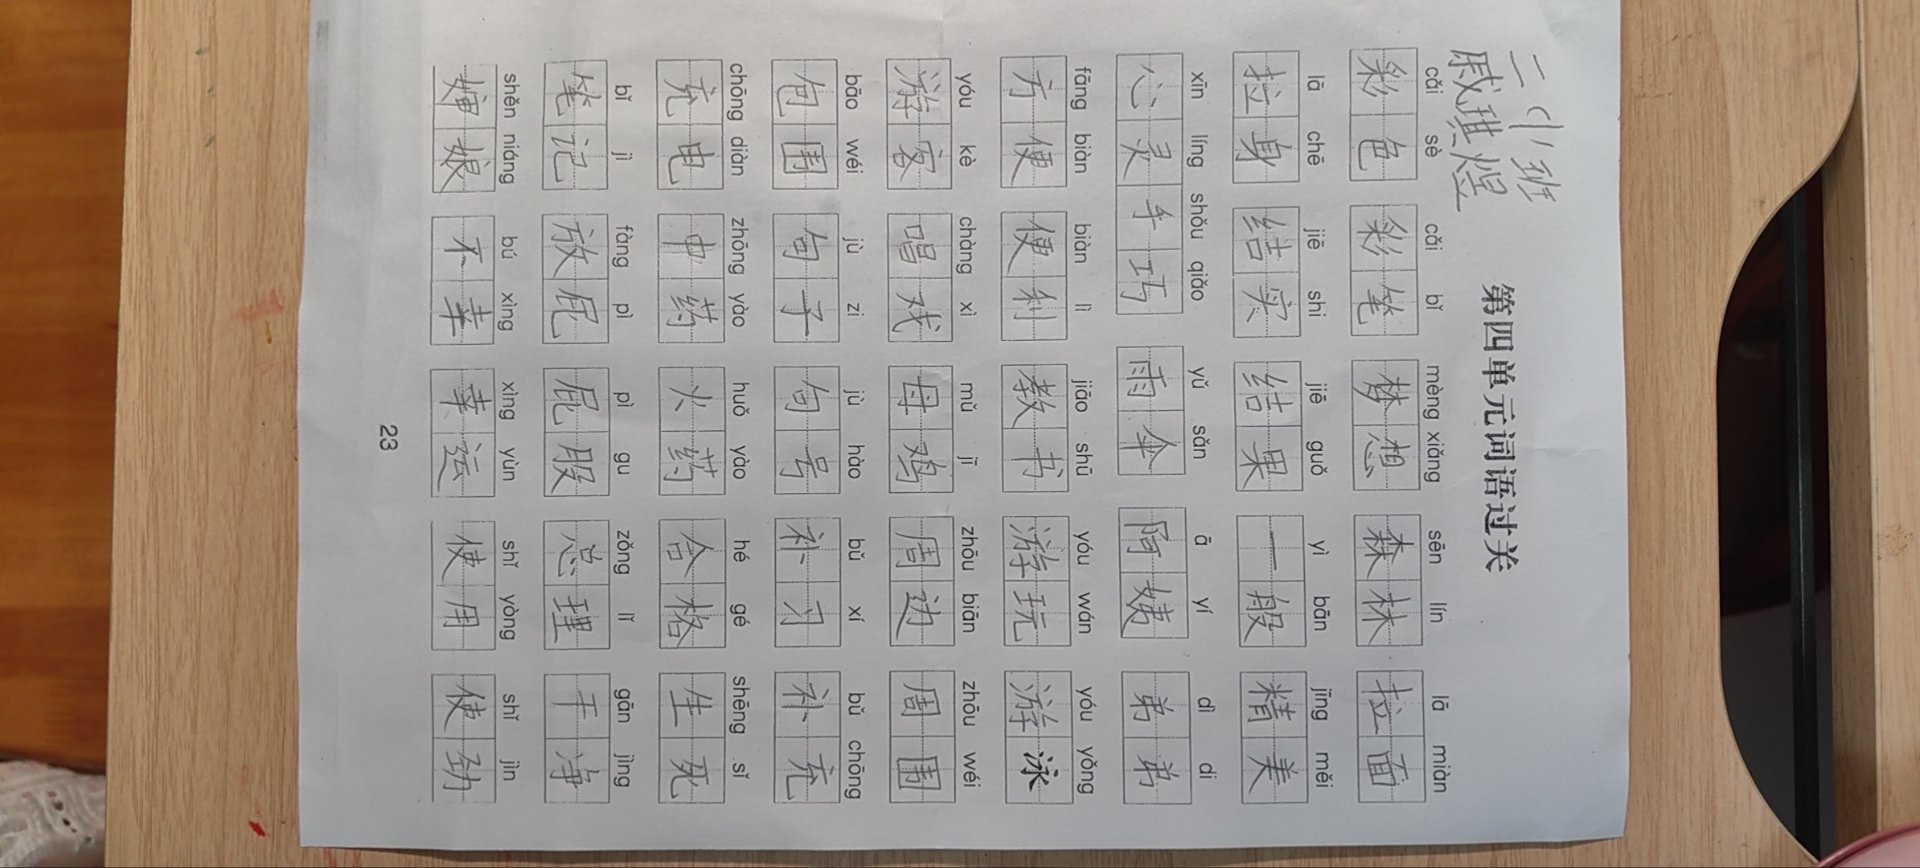 二(1)班
戚琪煜
第四单元词语过关
cǎi sè cǎi bǐ mèng xiǎng sēn lín lā miàn
彩色 彩笔 梦想 森林 拉面
lā chē jiē shi jiē guǒ yì bān jīng měi
拉身 结实 结果 一般 精美
xīn líng shǒu qiǎo yǔ sǎn ā yí dì di
心灵手巧 雨伞 阿姨 弟弟
fāng biàn biàn lì jiāo shū yóu wán yóu yǒng
方便 便利 教书 游玩 游泳
yóu kè chàng xì mǔ jī zhōu biān zhōu wéi
游客 唱戏 母鸡 周边 周围
bāo wéi jù zi jù hào bǔ xí bǔ chōng
包围 句子 句号 补习 补充
chōng diàn zhōng yào huǒ yào hé gé shēng sǐ
充电 中药 火药 合格 生死
bǐ jì fàng pì pì gu zǒng lǐ gān jìng
笔记 放屁 屁股 总理 干净
shěn niáng bú xìng xìng yùn shǐ yòng shǐ jìn
婶娘 不幸 幸运 使用 使劲
23